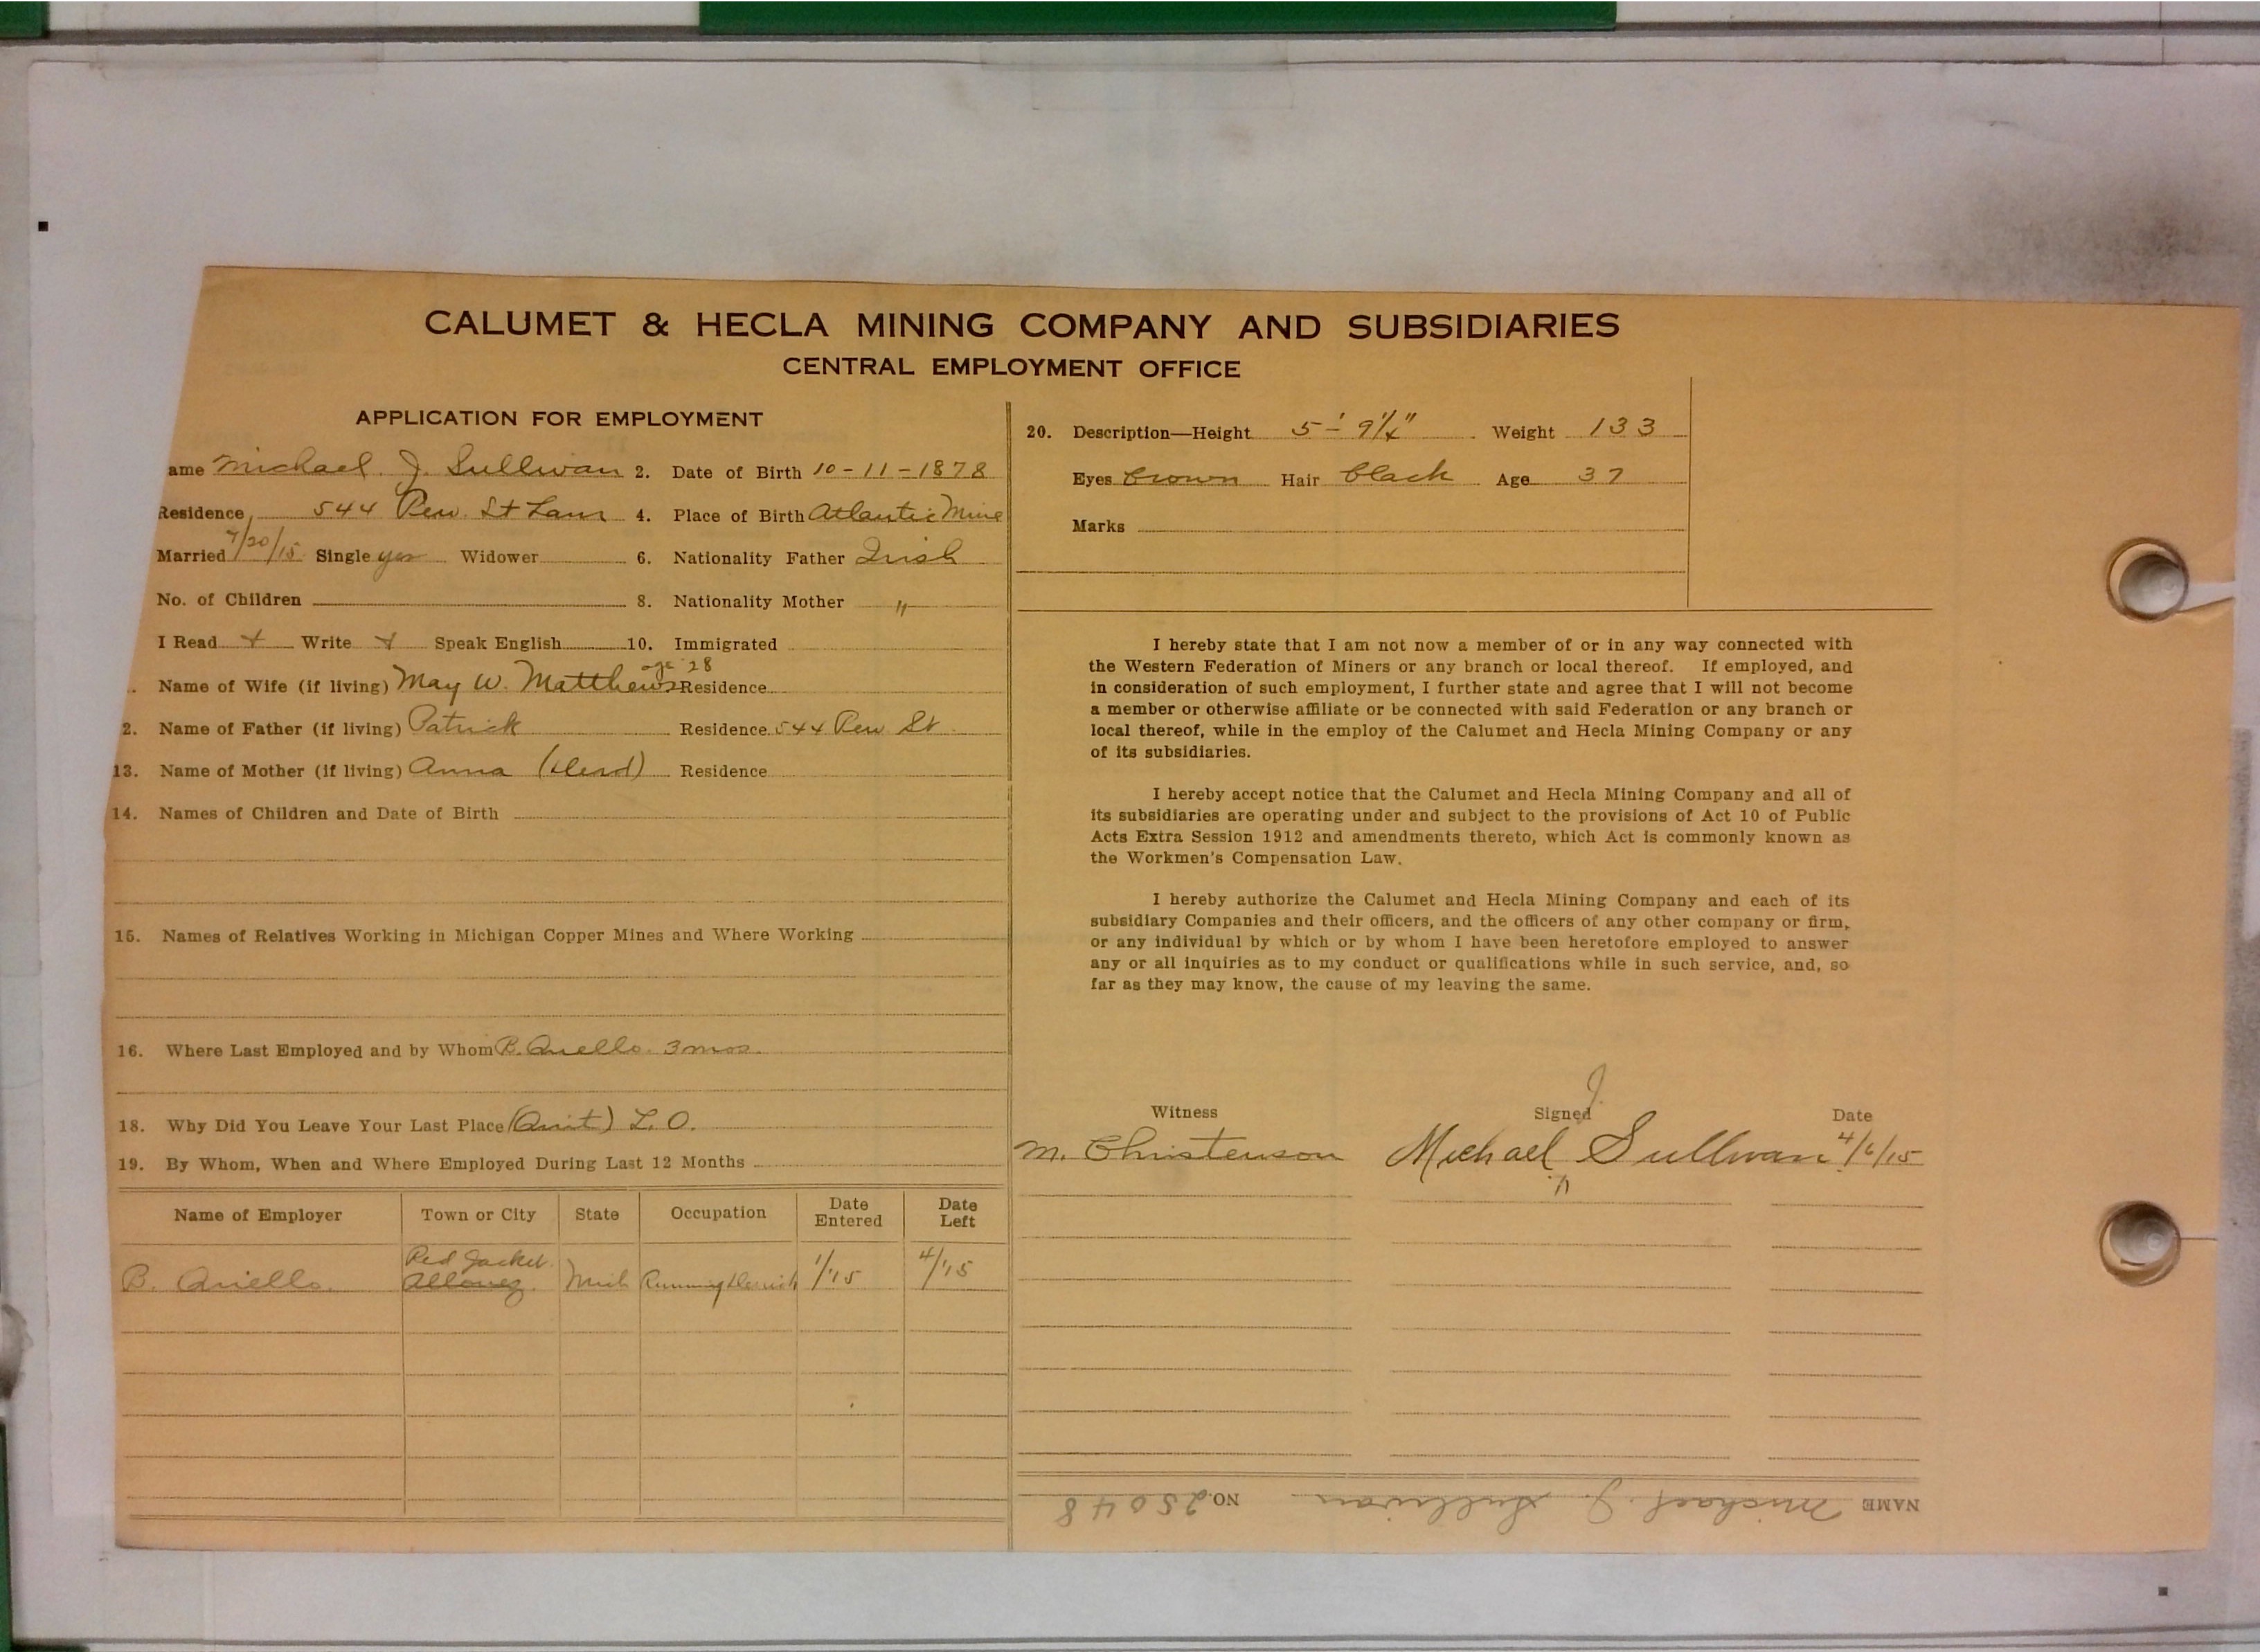 CALUMET & HECLA MINING COMPANY AND SUBSIDIARIES
CENTRAL EMPLOYMENT OFFICE
APPLICATION FOR EMPLOYMENT
ame Michael J. Sullivan 2. Date of Birth 10-11-1878
Residence 544 Pew. St Laur 4. Place of Birth Atlantic Mine
Married 7/20/15 Single yes Widower 6. Nationality Father Irish
No. of Children 8. Nationality Mother "
I Read + Write + Speak English 10. Immigrated
age 28
Name of Wife (if living) May W. Matthews Residence
2. Name of Father (if living) Patrick Residence 544 Pew St
13. Name of Mother (if living) Anna (Dead) Residence
14. Names of Children and Date of Birth
15. Names of Relatives Working in Michigan Copper Mines and Where Working
16. Where Last Employed and by Whom B. Quello. 3 mos.
18. Why Did You Leave Your Last Place (Quit) L.O.
19. By Whom, When and Where Employed During Last 12 Months
Name of Employer Town or City State Occupation Date Entered Date Left
Red Jacket
B. Quello. Allouez Mich Running Derrick 1/'15 4/'15
20. Description—Height 5-' 9 1/4" Weight 133
Eyes brown Hair black Age 37
Marks
I hereby state that I am not now a member of or in any way connected with
the Western Federation of Miners or any branch or local thereof. If employed, and
in consideration of such employment, I further state and agree that I will not become
a member or otherwise affiliate or be connected with said Federation or any branch or
local thereof, while in the employ of the Calumet and Hecla Mining Company or any
of its subsidiaries.
I hereby accept notice that the Calumet and Hecla Mining Company and all of
its subsidiaries are operating under and subject to the provisions of Act 10 of Public
Acts Extra Session 1912 and amendments thereto, which Act is commonly known as
the Workmen's Compensation Law.
I hereby authorize the Calumet and Hecla Mining Company and each of its
subsidiary Companies and their officers, and the officers of any other company or firm,
or any individual by which or by whom I have been heretofore employed to answer
any or all inquiries as to my conduct or qualifications while in such service, and, so
far as they may know, the cause of my leaving the same.
Witness Signed Date
M. Christenson Michael J. Sullivan 4/6/15
NAME Michael J. Sullivan NO. 25048